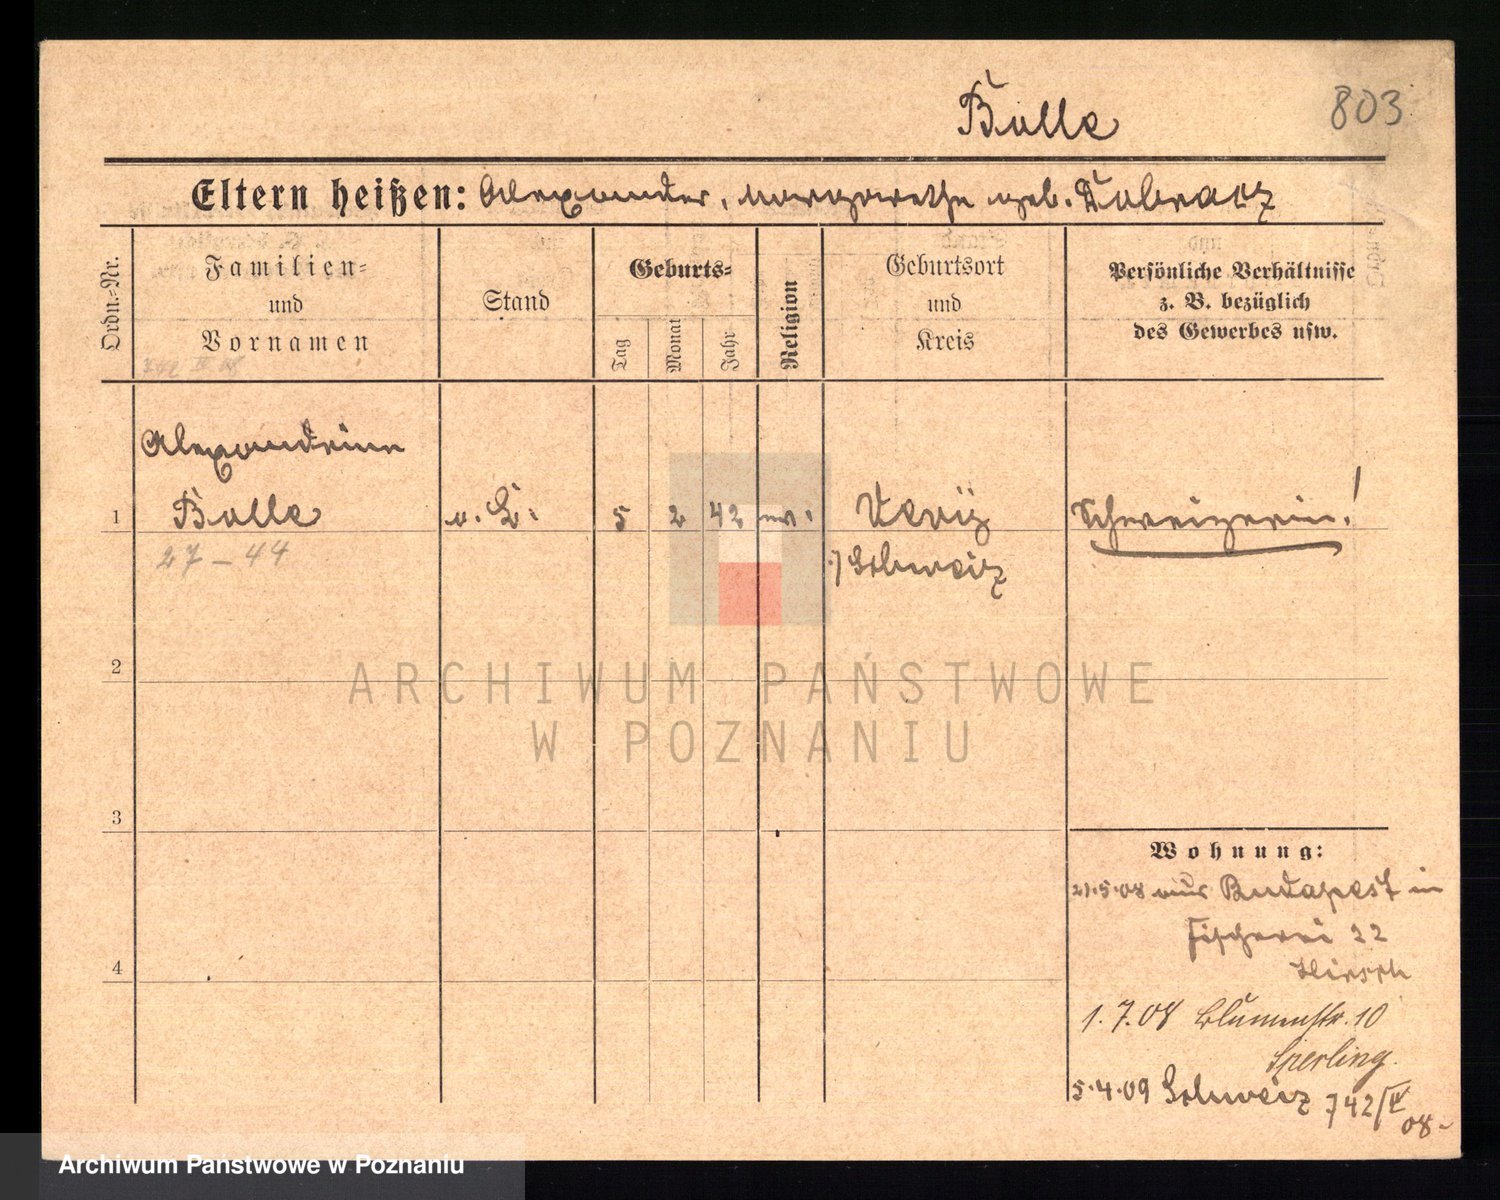 Balle
803
Eltern heißen: Alexander, Margarethe geb. Dobratz
Ordn.-Nr.
Familien-
und
Vornamen
Stand
Geburts-
Tag
Monat
Jahr
Religion
Geburtsort
und
Kreis
Persönliche Verhältnisse
z. B. bezüglich
des Gewerbes usw.
742 IV 08
Alexandrine
1 Balle 5 2 42 Schweizerin!
27 - 44
Schweiz
2
3
4
ARCHIWUM PAŃSTWOWE
W POZNANIU
Wohnung:
21.5.08 aus Budapest in
Fischerei 22
Hirsch
1.7.08 Blumenstr. 10
Sperling.
5.4.09 Schweiz 742/IV
08-
Archiwum Państwowe w Poznaniu